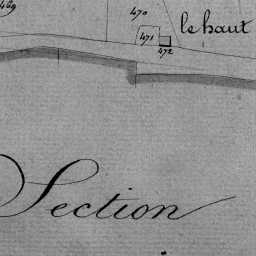 469
470
le haut
471
472
Section